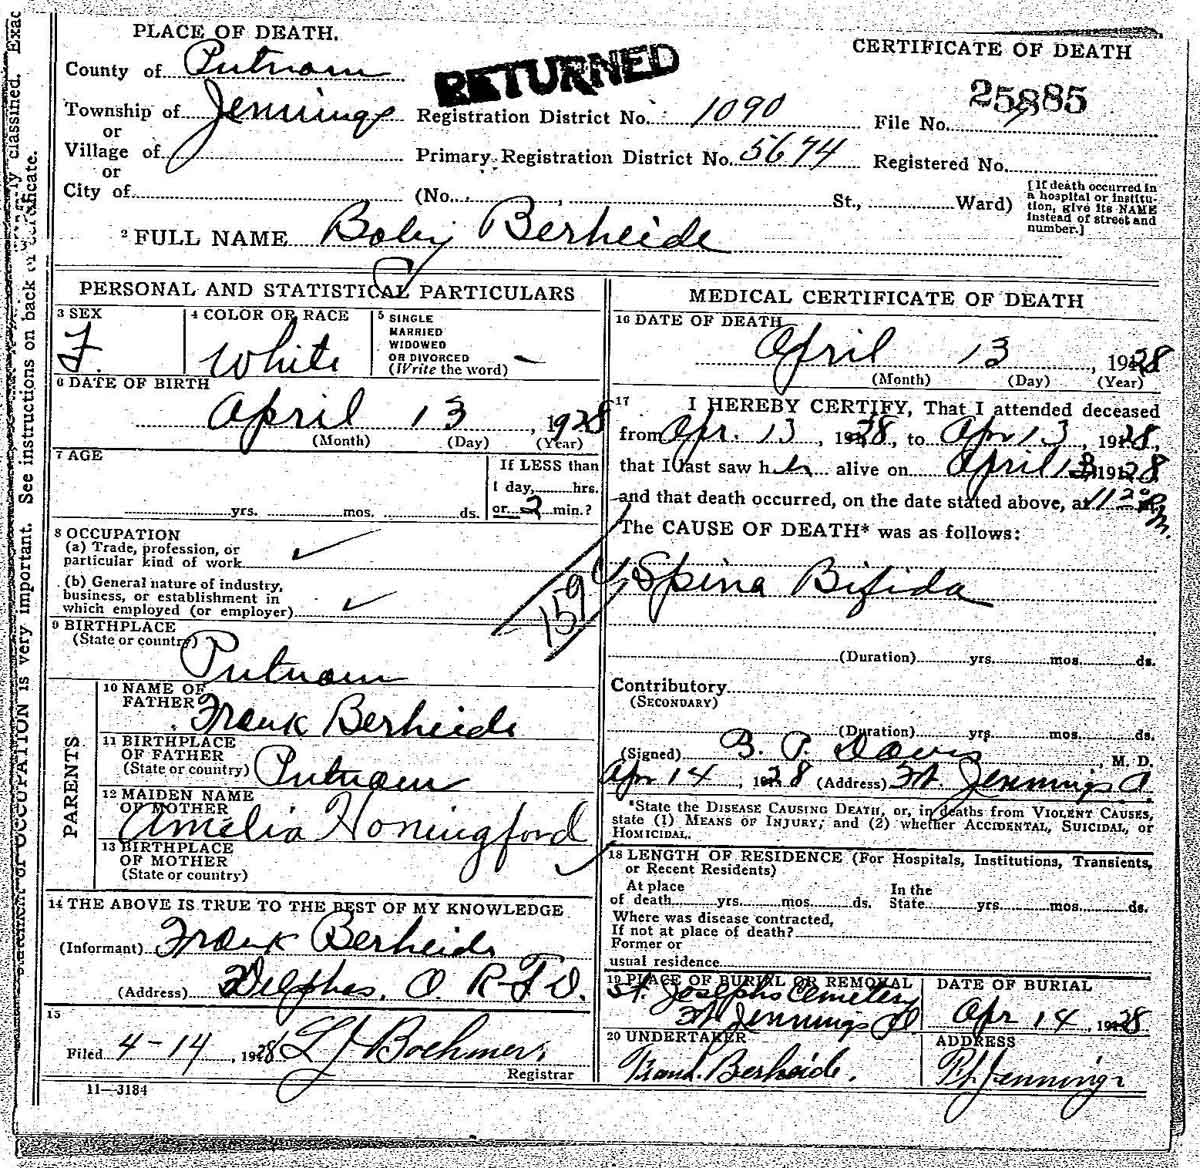 PLACE OF DEATH.
CERTIFICATE OF DEATH
County of Putnam
RETURNED
25885
Township of Jennings Registration District No. 1090 File No.
or
Village of Primary Registration District No. 5674 Registered No.
or
City of (No. , St., Ward) [If death occurred in a hospital or institution, give its NAME instead of street and number.]
2 FULL NAME Baby Berheide
PERSONAL AND STATISTICAL PARTICULARS
3 SEX F. 4 COLOR OR RACE White 5 SINGLE MARRIED WIDOWED OR DIVORCED (Write the word) –
6 DATE OF BIRTH
April 13, 1928
(Month) (Day) (Year)
7 AGE If LESS than
1 day, hrs.
yrs. mos. ds. or 2 min.?
8 OCCUPATION
(a) Trade, profession, or
particular kind of work ✓
(b) General nature of industry,
business, or establishment in
which employed (or employer) ✓
9 BIRTHPLACE
(State or country)
Putnam
PARENTS
10 NAME OF
FATHER Frank Berheide
11 BIRTHPLACE
OF FATHER
(State or country) Putnam
12 MAIDEN NAME
OF MOTHER
Amelia Honingford
13 BIRTHPLACE
OF MOTHER
(State or country)
14 THE ABOVE IS TRUE TO THE BEST OF MY KNOWLEDGE
(Informant) Frank Berheide
(Address) Delphos, O. R.F.D.
15
Filed 4-14, 1928 L J Boehmer
Registrar
11—3184
MEDICAL CERTIFICATE OF DEATH
16 DATE OF DEATH
April 13, 1928
(Month) (Day) (Year)
17 I HEREBY CERTIFY, That I attended deceased
from Apr. 13, 1928, to Apr 13, 1928,
that I last saw her alive on April 13 1928
and that death occurred, on the date stated above, at 11 20 P m.
The CAUSE OF DEATH* was as follows:
159
Spina Bifida
(Duration) yrs. mos. ds.
Contributory
(SECONDARY)
(Duration) yrs. mos. ds.
(Signed) B. P. Davis, M. D.
Apr 14, 1928 (Address) Ft. Jennings O.
*State the DISEASE CAUSING DEATH, or, in deaths from VIOLENT CAUSES,
state (1) MEANS OF INJURY; and (2) whether ACCIDENTAL, SUICIDAL, or
HOMICIDAL.
18 LENGTH OF RESIDENCE (For Hospitals, Institutions, Transients,
or Recent Residents)
At place In the
of death yrs. mos. ds. State yrs. mos. ds.
Where was disease contracted,
If not at place of death?
Former or
usual residence
19 PLACE OF BURIAL OR REMOVAL DATE OF BURIAL
St. Josephs Cemetery
Ft. Jennings O Apr 14, 1928
20 UNDERTAKER ADDRESS
Berheide. Ft. Jennings
OCCUPATION is very important. See instructions on back of certificate.
classified. Exac